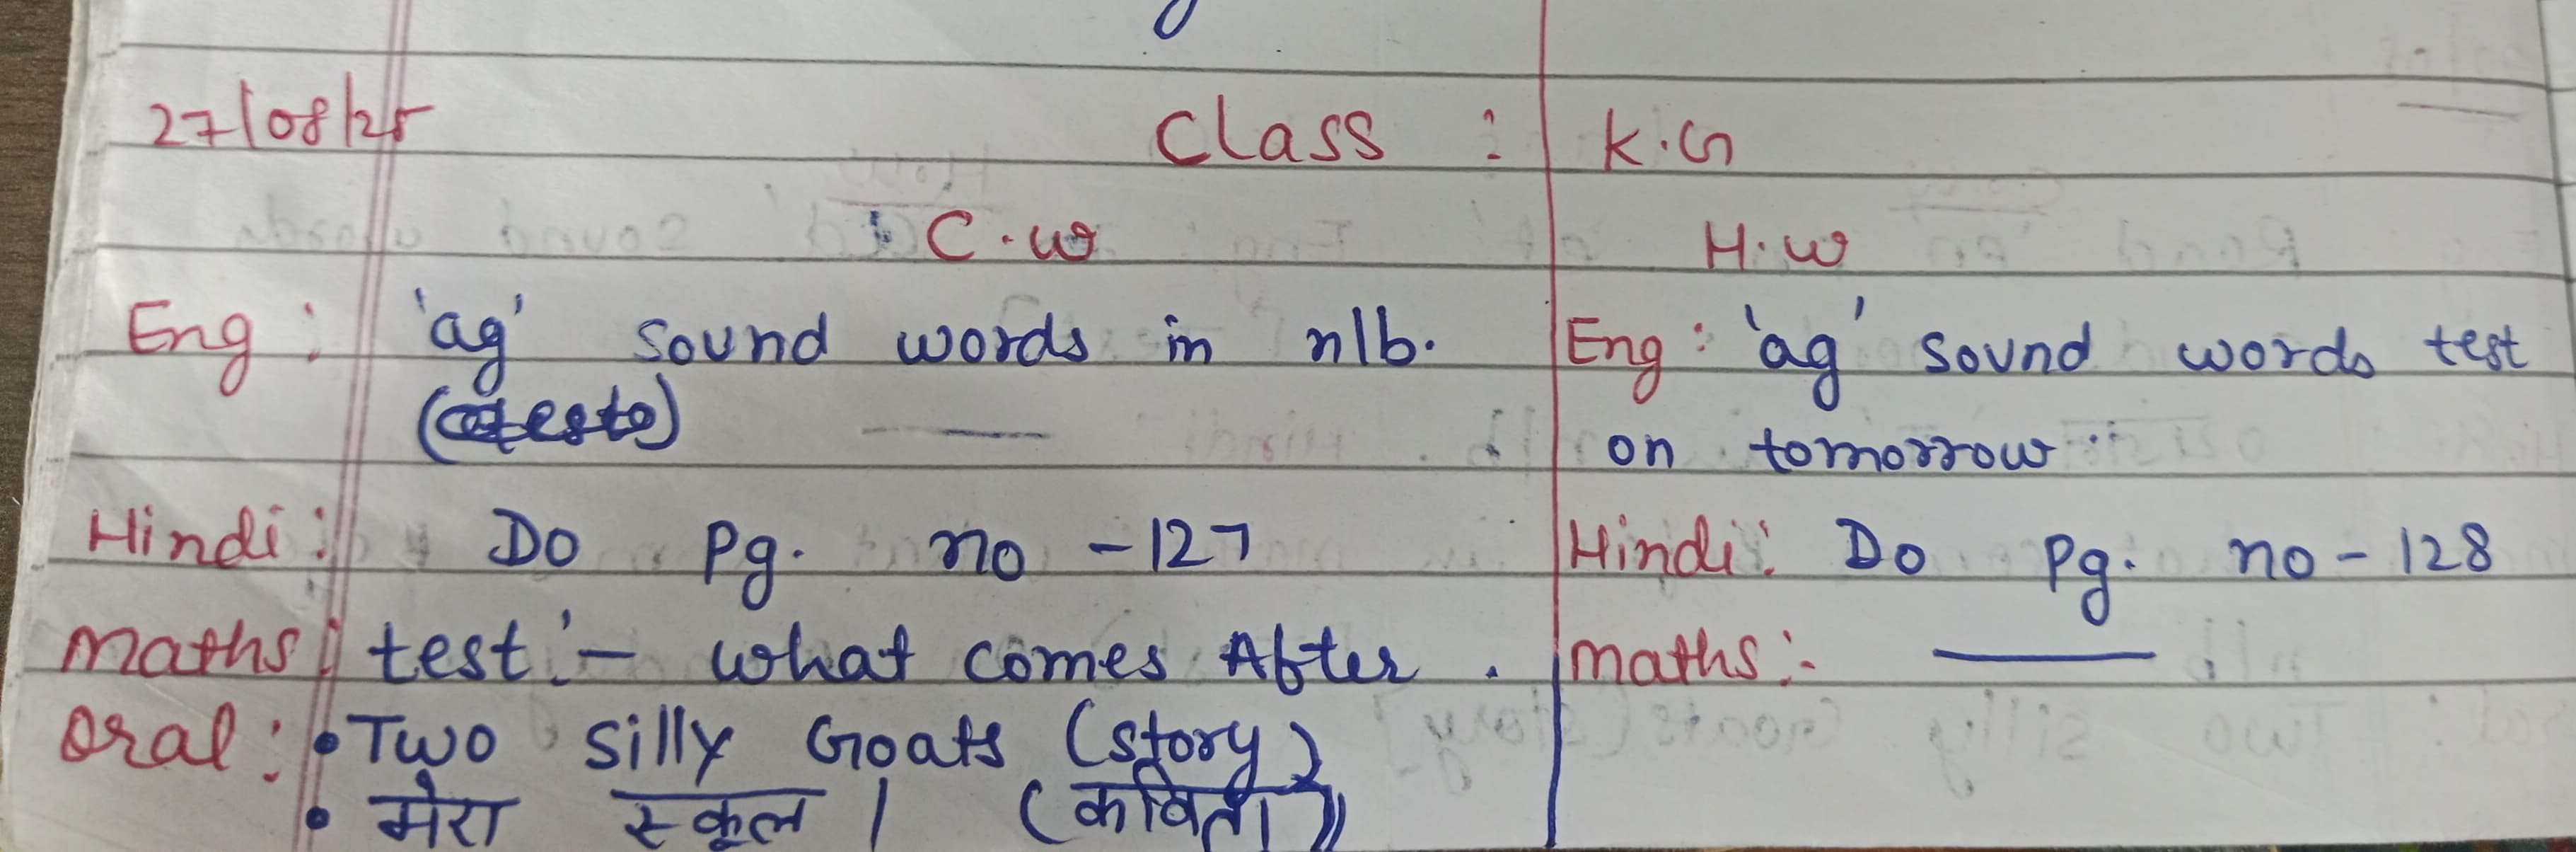 27/08/25 Class : K.G
C.w H.w
Eng : 'ag' sound words in n/b. Eng : 'ag' sound words test
on tomorrow
Hindi : Do Pg. no - 127 Hindi : Do Pg. no - 128
Maths : test :- what comes After . Maths :-
Oral : • Two silly Goats (story)
• मेरा स्कूल । (कविता)